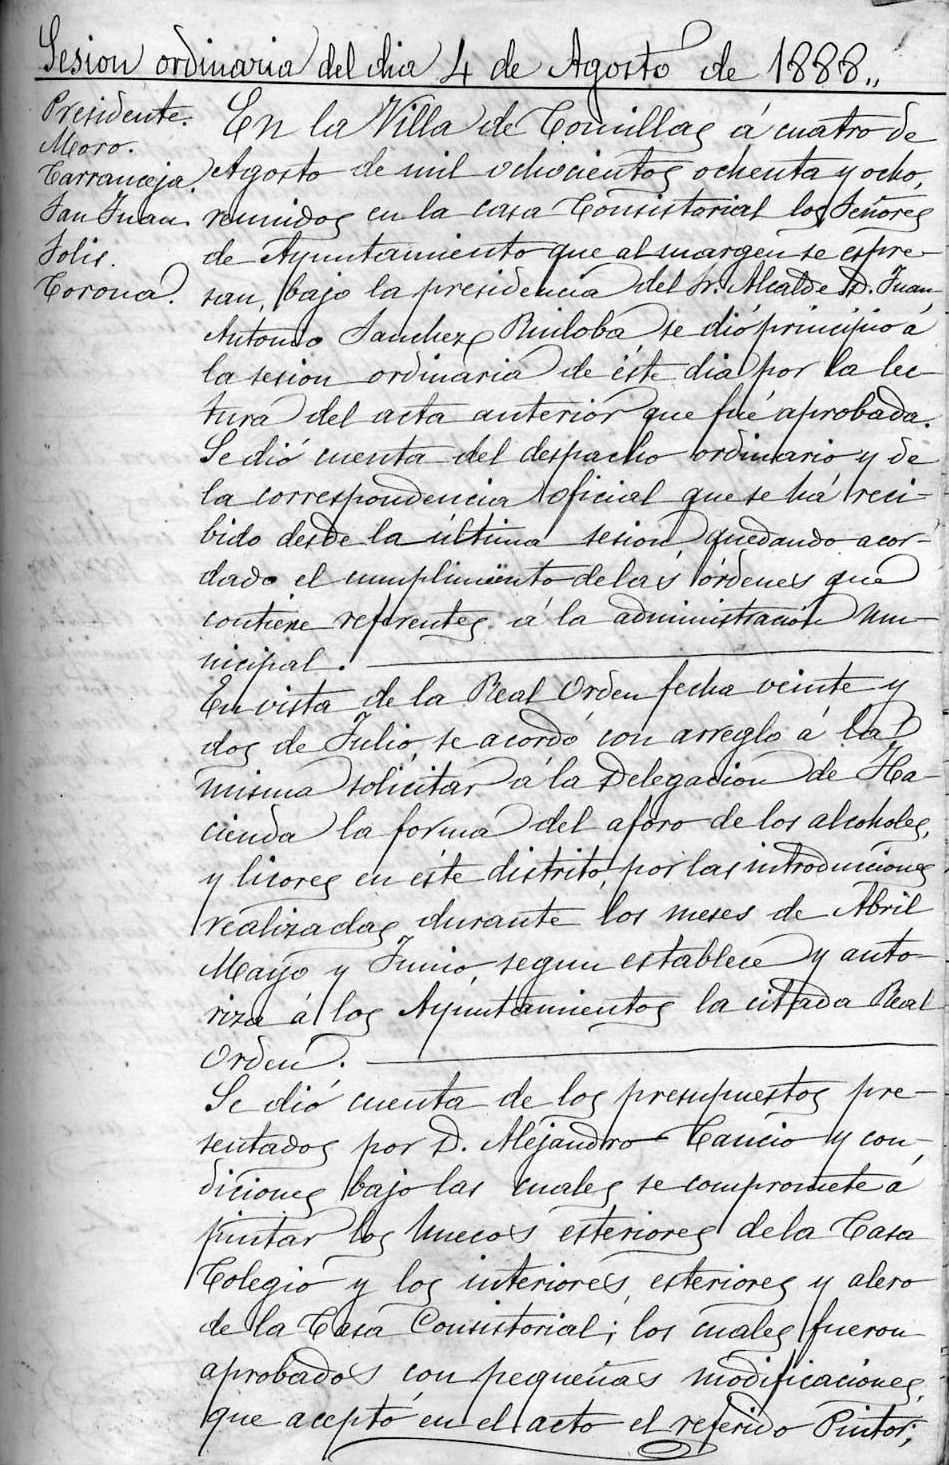 Sesion ordinaria del dia 4 de Agosto de 1888.,
Presidente.
Moro.
Carranceja.
San Juan
Solis.
Corona.
En la Villa de Comillas á cuatro de
Agosto de mil ochocientos ochenta y ocho,
reunidos en la casa Consistorial los Señores
de Ayuntamiento que al margen se espre-
san, bajo la presidencia del Sr. Alcalde D. Juan
Antonio Sanchez Ruiloba, se dió principio á
la sesion ordinaria de éste dia por la lec-
tura del acta anterior que fué aprobada.
Se dió cuenta del despacho ordinario y de
la correspondencia oficial que se há reci-
bido desde la última sesion, quedando acor-
dado el cumplimiento de las órdenes que
contiene referentes á la administracion mu-
nicipal.
En vista de la Real Orden fecha veinte y
dos de Julio, se acordó con arreglo á la
misma solicitar á la Delegacion de Ha-
cienda la forma del aforo de los alcoholes,
y licores en éste distrito, por las introduciones
realizadas durante los meses de Abril
Mayo y Junio, segun establece y auto-
riza á los Ayuntamientos la citada Real
Orden.
Se dió cuenta de los presupuestos pre-
sentados por D. Alejandro Cancio y con-
diciones bajo las cuales se compromete á
pintar los huecos esteriores de la Casa
Colegio y los interiores, esteriores y alero
de la Casa Consistorial; los cuales fueron
aprobados con pequeñas modificaciones,
que aceptó en el acto el referido Pintor;